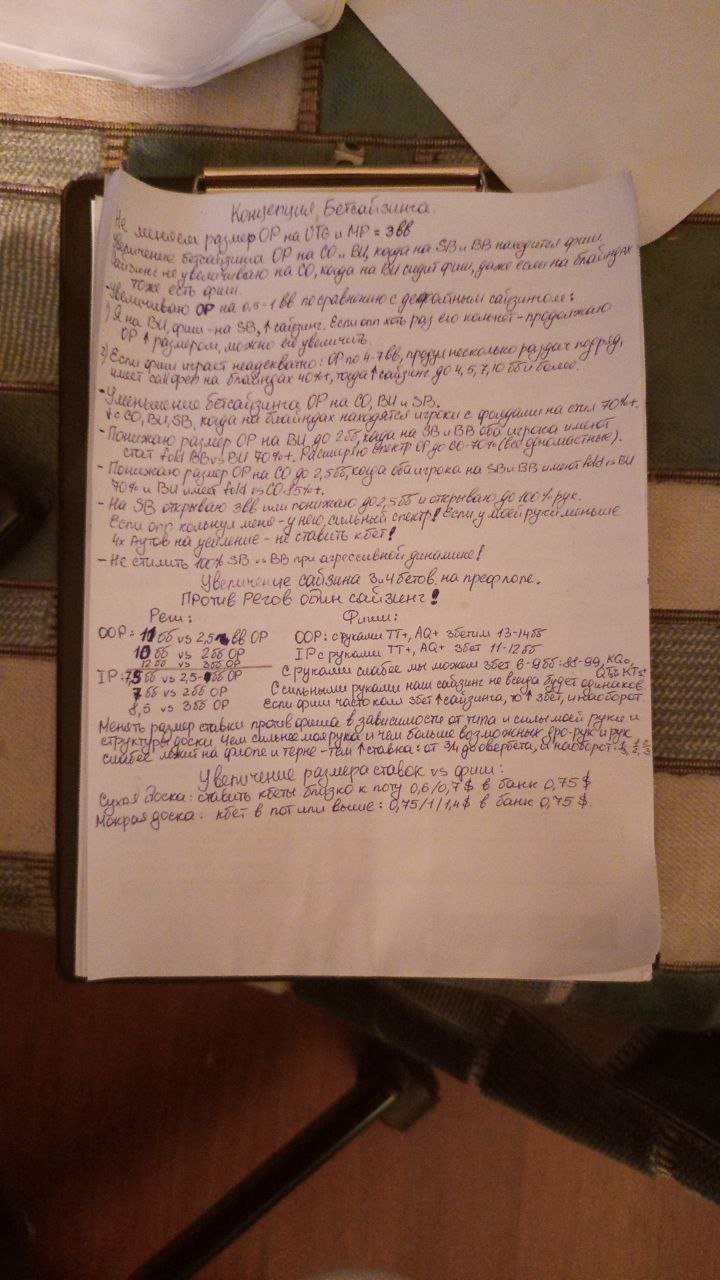 Концепция Бетсайзинга.
Не меняем размер OP на UTG и MP = 3вв
Увеличение бетсайзинга OP на CO и BU, когда на SB и BB находится фиш.
Сайзинг не увеличиваю на CO, когда на BU сидит фиш, даже если на блайндах
тоже есть фиш.
- Увеличиваю OP на 0,5-1 вв по сравнению с дефолтным сайзингом:
1) Я на BU, фиш - на SB, ↑ сайзинг. Если опп хоть раз его кольнет - продолжаю
OP ↑ размером, можно его увеличить.
2) Если фиш играет неадекватно: OP по 4-7вв, продул несколько раздач подряд,
имеет колл на блайндах 40%+, тогда ↑ сайзинг до 4, 5, 7, 10 бб и более.
- Уменьшение бетсайзинга OP на CO, BU и SB.
с CO, BU, SB, когда на блайндах находятся игроки с фолдами на стил 70%+.
- Понижаю размер OP на BU до 2бб, когда на SB и BB оба игрока имеют
стат fold BB vs BU 70%+. Расширяю спектр OP до 60-70% (все одномастные).
- Понижаю размер OP на CO до 2,5бб, когда оба игрока на SB и BB имеют fold vs BU
70% и BU имеет fold vs CO 85%+.
- На SB открываю 3вв или понижаю до 2,5бб и открываю до 100% рук.
Если опп кольнул меня - у него сильный спектр! Если у моей руки меньше
4х Аутов на усиление - не ставить кбет!
- Не стилить 100% SB vs BB при агрессивной динамике!
Увеличение сайзина 3 и 4бетов на префлопе.
Против Регов один сайзинг!
Реги: Фиши:
OOP: 11бб vs 2,5 вв OP OOP: с руками TT+, AQ+ 3бетим 13-14бб
10бб vs 2бб OP IP с руками TT+, AQ+ 3бет 11-12бб
12бб vs 3бб OP С руками слабее мы можем 3бет 8-9бб: 88-99, KQo,
IP: 7,5бб vs 2,5 бб OP QTs KTs+
7бб vs 2бб OP С сильными руками наш сайзинг не всегда будет одинаков
8,5 vs 3бб OP Если фиш часто колл 3бет ↑ сайзинга, то ↑ 3бет, и наоборот.
Менять размер ставки против фиша в зависимости от типа и силы моей руки и
структуры доски. Чем сильнее моя рука и чем больше возможных дро-рук и рук
слабее моей на флопе и терне - тем ↑ ставка: от 3/4 до овербета, и наоборот
Увеличение размера ставок vs фиш:
Сухая Доска: ставить кбеты близко к поту 0,6/0,7$ в банк 0,75$
Мокрая доска: кбет в пот или выше: 0,75/1/1,4$ в банк 0,75$